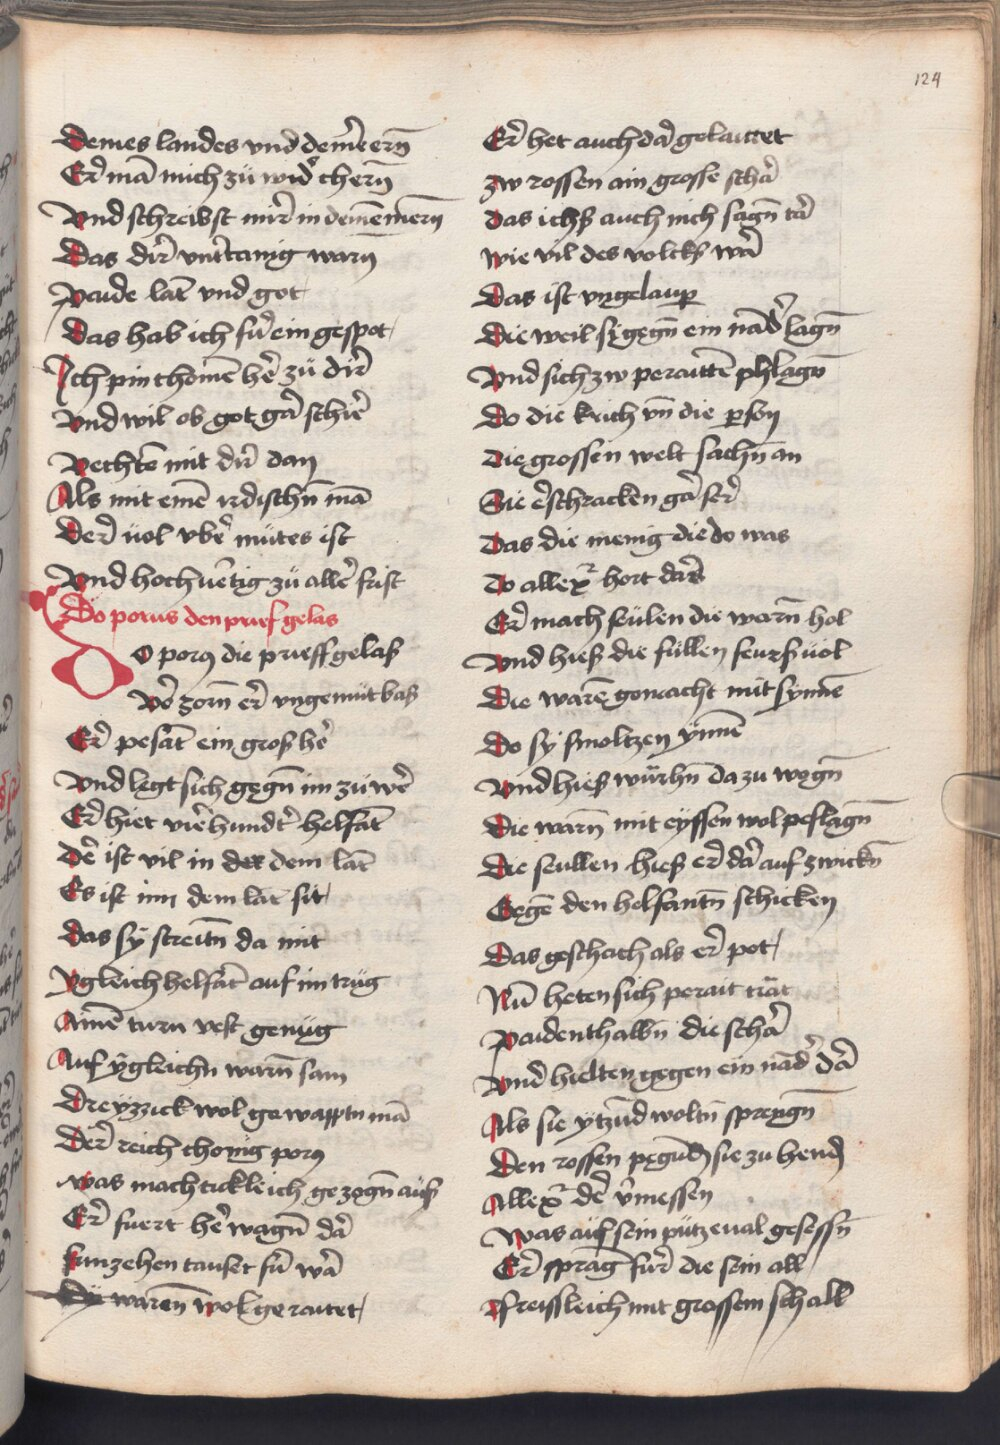 124
Deines landes vnd deiner̃ ern̄
Er̃ mā mich zü wid̾ chern̄
Vnd schreibst mir̃ in deinē mern̄
Das dir̃ vnt̾tanig warn̄
Paide lāt vnd got
Das hab ich fur̃ ein gespot
Ich pin chomē he̾ zü dir̃
Vnd wil ob got ga̾ schie̾
Vechtē mit dir̃ dan
Als mit einē irdischn̄ mā
Der̃ üol vbe̾ mütes ist
Vnd hochue̾tig zü alle̾ frist
Do porus den prief gelas
Do porꝯ die prieff gelaß
Vō zorn̄ er̃ vngemüt baß
Er̃ pesāt ein groß he̾
Vnd legt sich gegn̄ im zü we̾
Er̃ hiet vie̾ hundt̾ helfāt
De̾ ist vil in der dem lāt
Es ist inn dem lāt sit
das sy streitn̄ da mit
Ygleich helfāt auf im trüg
Ainē turn vest genüg
Auf ÿgleichn warn̄ sam
Dreyzzick wol gewapptn mā
Der̃ reich chonig porꝯ
was machtickleich gezogn̄ auß
Er̃ fuert he̾ wagn̄ da̾
funzehen tauset fur̃ wa̾
Dÿ waren̄ wol geraitet
Er̃ het auch da̾ gelaittet
zw rossen ain grosse scha̾
Das ichß auch nich sagn̄ ta̾
wie vil des volckß wa̾
Das ist vngelaup
Die weil sy gegn̄ ein nād̾ lagn̄
Vnd sich zw peraittē phlagn̄
Do die krich vn̄ die ꝑson
Die grossen welt sachn̄ an
Sie e̾schracken ga̾ ser̃
Das die menig die do was
Do allex̾ hort daß
Er̃ mach seülen die warn̄ hol
Vnd hieß die füllen feurß üol
Die warē gemacht mit synnē
Do sy smoltzen ÿnnē
Vnd hieß würhn̄ dazu wegn̄
Die warn̄ mit eyssen wol peslagn̄
Die seullen hieß er̃ da̾ auf zwickn̄
Gegē den helfantn̄ schicken
Das geschach als er̃ pot
Nū heten sich perait trāt
Paidenthalbn̄ die scha̾
Vnd hielten gegen ein nād̾ da̾
Als sie ytzūd woltn̄ sprengn̄
Den rossen pegūdn̄ sie zu hend
Allex̾ de̾ v̾messen
Was auf sein pützeual gesessn̄
Er̃ sprāg fur̃ die sein all
Freissleich mit grossem schall